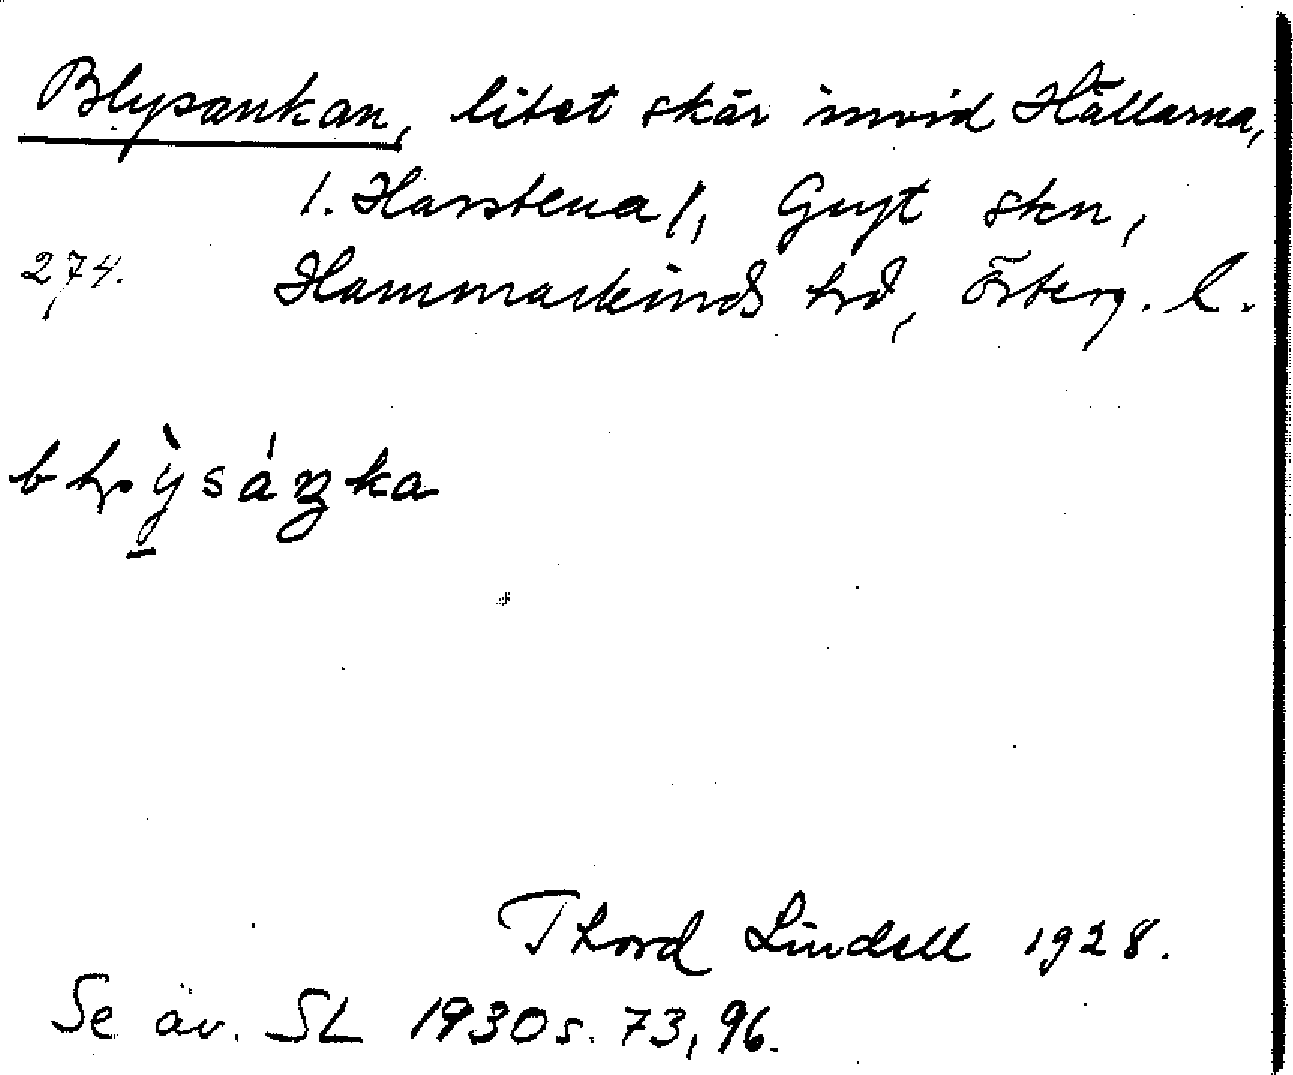 Blysankan, litet skär invid Hällarna,
/. Harstena /, Gryt skn,
274. Hammarkinds hrd, Österg. l.
blỳsáŋka
Thord Lindell 1928.
Se äv. SL 1930 s. 73, 96.